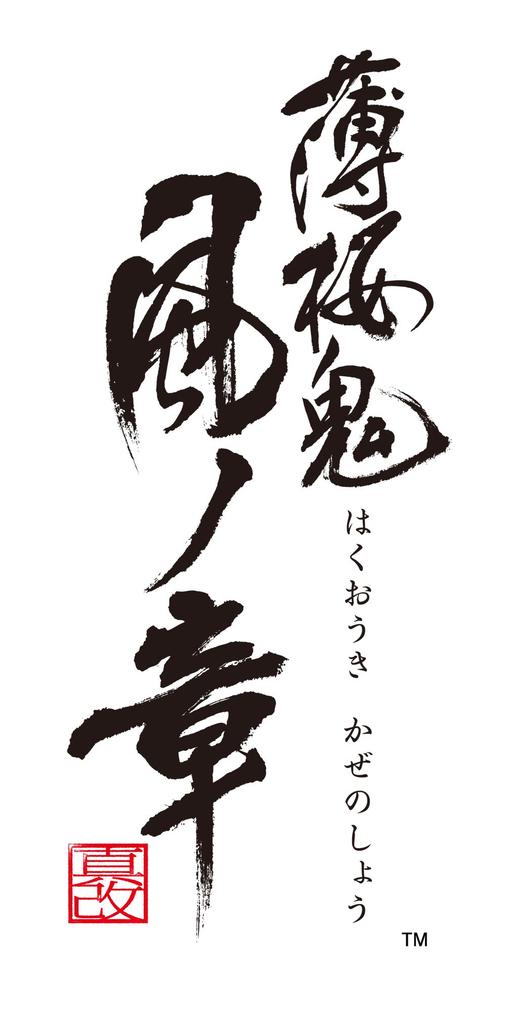 薄桜鬼
はくおうき かぜのしょう
風ノ章
真改
TM